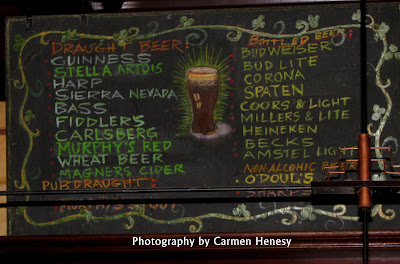 DRAUGHT BEER:
GUINNESS
STELLA ARTOIS
HARP
SIERRA NEVADA
BASS
FIDDLER'S
CARLSBERG
MURPHY'S RED
WHEAT BEER
MAGNERS CIDER
PUB DRAUGHT:
BOTTLED BEER:
BUDWEISER
BUD LITE
CORONA
SPATEN
COORS & LIGHT
MILLERS & LITE
HEINEKEN
BECKS
AMSTEL LIGHT
NON ALCOHOLIC
O'DOUL'S
Photography by Carmen Henesy